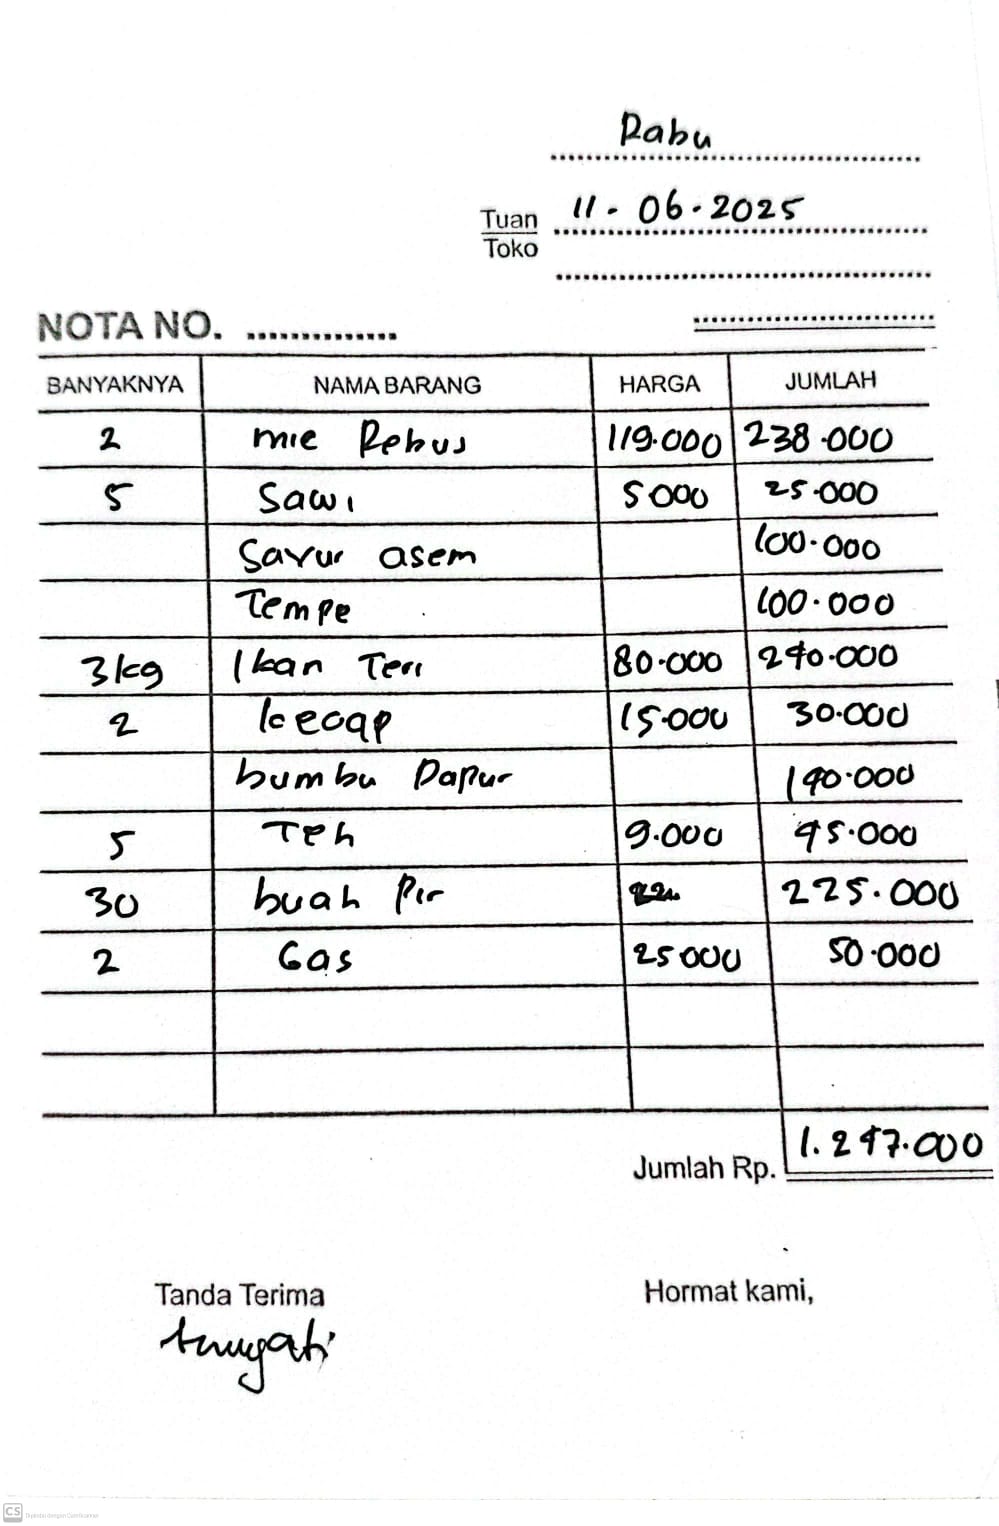 Rabu
Tuan 11-06-2025
Toko
NOTA NO. ..............
BANYAKNYA NAMA BARANG HARGA JUMLAH
2 mie Rebus 119.000 238.000
5 Sawi 5000 25.000
Sayur asem 100.000
Tempe 100.000
3kg Ikan Teri 80.000 240.000
2 kecap 15.000 30.000
bumbu Dapur 190.000
5 Teh 9.000 45.000
30 buah Pir 225.000
2 Gas 25000 50.000
Jumlah Rp. 1.247.000
Tanda Terima Hormat kami,
CS